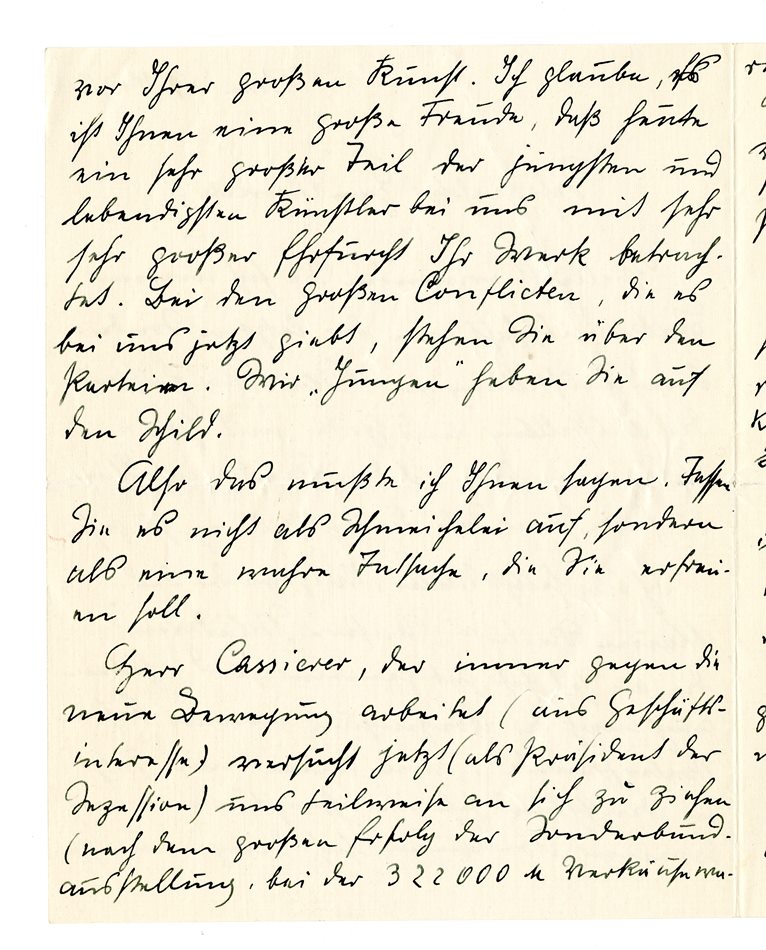 vor Ihrer großen Kunst. Ich glaube, es
ist Ihnen eine große Freude, daß heute
ein sehr großer Teil der jüngsten und
lebendigsten Künstler bei uns mit sehr
sehr großer Ehrfurcht Ihr Werk betrach-
tet. Bei den großen Conflicten, die es
bei uns jetzt giebt, stehen Sie über den
Parteien. Wir „Jungen" heben Sie auf
den Schild.
Also das mußte ich Ihnen sagen. Fassen
Sie es nicht als Schmeichelei auf, sondern
als eine wahre Tatsache, die Sie erfreu-
en soll.
Herr Cassierer, der immer gegen die
neue Bewegung arbeitet (aus Geschäfts-
interesse) versucht jetzt (als Präsident der
Sezession) uns teilweise an sich zu ziehen
(nach dem großen Erfolg der Sonderbund-
ausstellung, bei der 322000 M Verkäufe wa-